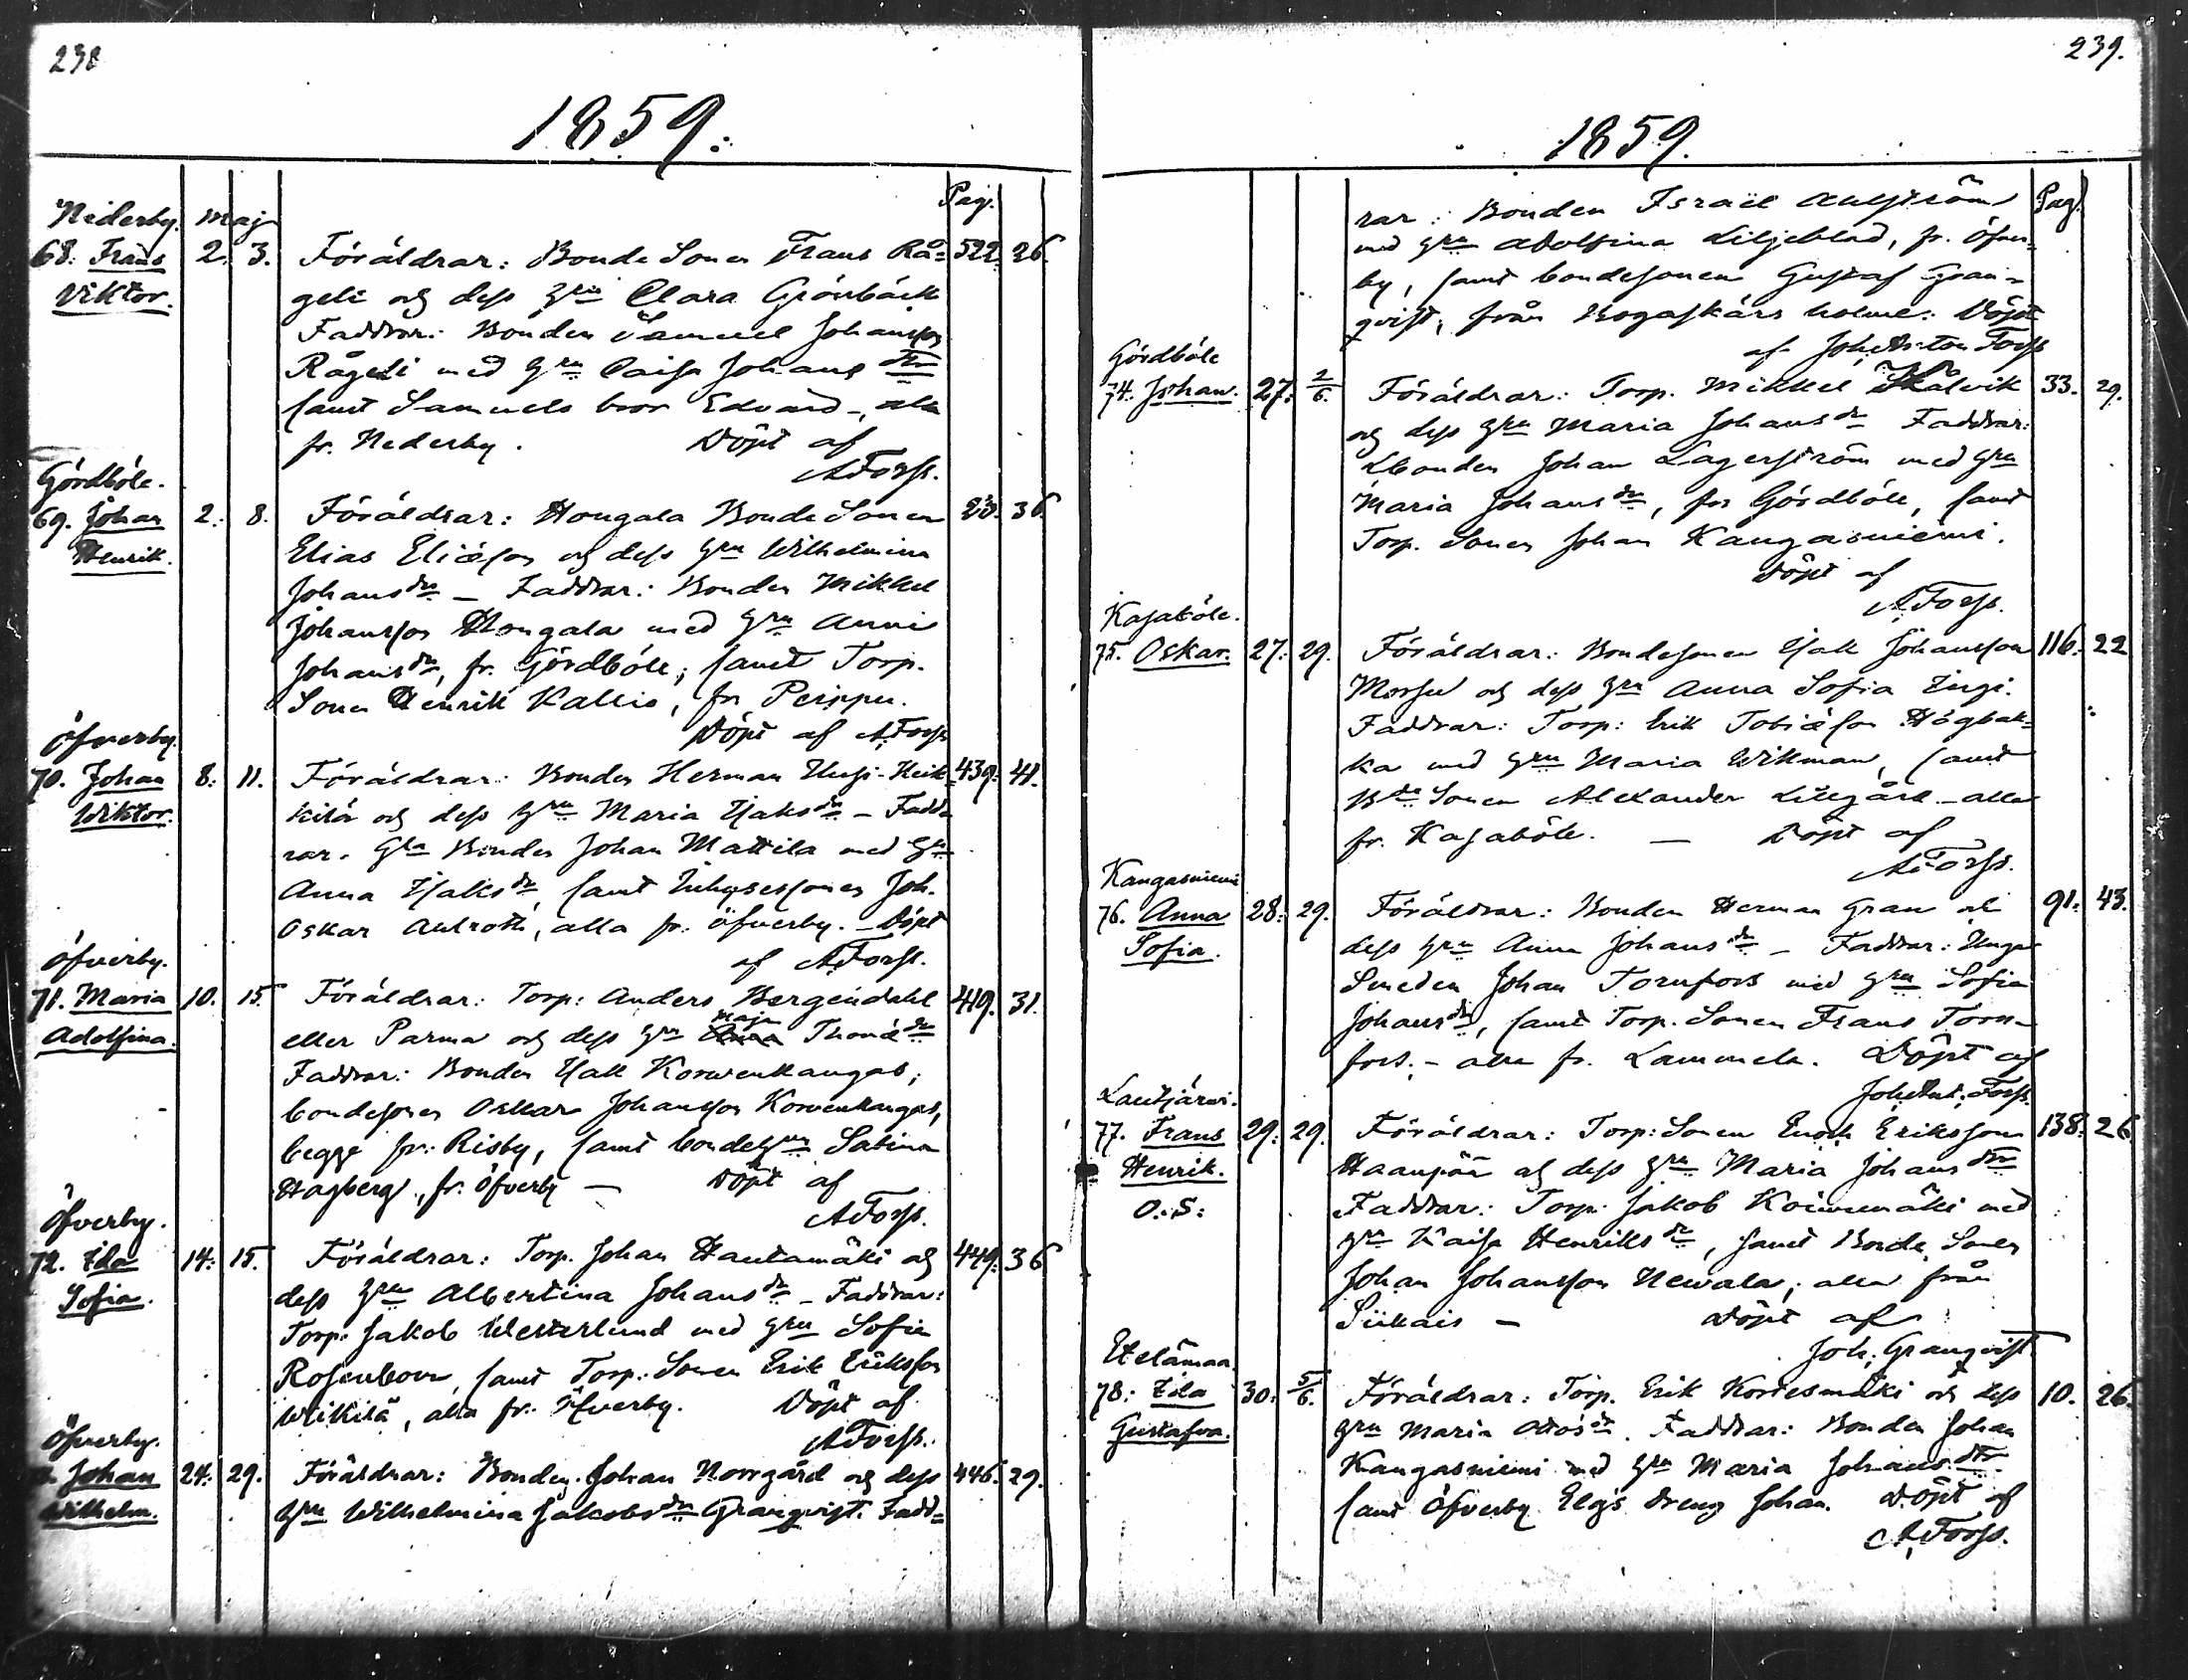 238
1859.
Pag.
Nederby. Maj
68. Frans 2. 3. Föräldrar: Bonde Sonen Frans Rå= 522. 26.
Viktor. geli och dess Hru Clara Grönbäck
Faddrar: Bonden Samuel Johansson
Rågeli med Hru Caisa Johans dtr
samt Samuels bror Edvard -, alla
fr. Nederby. Döpt af
AForss.
Gördböle.
69. Johan 2. 8. Föräldrar: Hongala Bonde Sonen 36.
Henrik. Elias Eliæson och dess Hru Wilhelmina
Johansdr – Faddrar: Bonden Mikkel
Johansson Hongala med Hru Anni
Johansdr, fr. Gördböle; samt Torp.
Sonen Henrik Kallio, fr Peippu.
Döpt af AForss
Öfverby.
70. Johan 8. 11. Föräldrar: Bonden Herman Uusi-Heik= 439. 41.
Wiktor. kilä och dess Hru Maria Isaksdr – Fadd=
rar. Gla Bonden Johan Mattila med Hru
Anna Isaksdr, samt Inhysessonen Joh.
Oskar Antroth, alla fr. Öfverby. – Döpt
af AForss.
Öfverby.
71. Maria 10. 15. Föräldrar: Torp: Anders Bergendahl 419. 31.
Adolfina. eller Parma och dess Hru Maja Thomædr
Faddrar: Bonden Isak Korwenkangas;
bondesonen Oskar Johansson Korvenkangas,
begge fr. Risby, samt bondehrun Sabina
Hagberg, fr. Öfverby – Döpt af
AForss.
Öfverby.
72. Ida 14. 15. Föräldrar: Torp. Johan Hautamäki och 449. 36
Sofia. dess Hru Albertina Johansdr – Faddrar:
Torp. Jakob Westerlund med Hru Sofia
Rosenboom, samt Torp. Sonen Erik Eriksson
Wikilä, alla fr. Öfverby. Döpt af
AForss.
Öfverby.
Johan 24. 29. Föräldrar: Bonden Johan Norrgård och dess 446. 29.
Wilhelm. Hru Wilhelmina Jakobsdr Granqvist. Fadd=
239.
1859.
Pag.
rar: Bonden Israël Ahlström
med Hru Adolfina Liljeblad, fr. Öfver-
by, samt bondesonen Gustaf Gran=
qvist, från Bogaskärs holme. Döpt
af Joh. Anton Forss
Gördböle
74. Johan. 27. 2/6. Föräldrar: Torp. Mikkel Skålvik 33. 29.
och dess Hru Maria Johansdr Faddrar:
Lbonden Johan Lagerström med Hru
Maria Johansdr, frn Gördböle, samt
Torp. Sonen Johan Kangasniemi.
Döpt af
AForss.
Kasaböle.
75. Oskar. 27. 29. Föräldrar: Bondesonen Isak Johansson 116. 22
och dess Hru Anna Sofia Ingi.
Faddrar: Torp: Erik Tobiæson Högbak=
ka med Hru Maria Wikman, samt
Bde Sonen Alexander Lillgård – alla
fr. Kasaböle. – Döpt af
AForss.
Kangasniemi
76. Anna 28. 29. Föräldrar: Bonden Herman Gran och 91. 43.
Sofia. dess Hru Anna Johansdr – Faddrar: Unga
Smeden Johan Tornfors med Hru Sofia
Johansdr, samt Torp. Sonen Frans Torn-
fors. – alla fr. Lammela. Döpt af
Joh. Ant. Forss.
Lautjärvi.
77. Frans 29. 29. Föräldrar: Torp: Sonen Enoch Eriksson 138. 26
Henrik. Haanpää och dess Hru Maria Johansdtr
O.S: Faddrar: Torp. Jakob Koivumäki med
Hru Kaisa Henriksdr, samt Bonde Sonen
Johan Johansson Newala; alla från
Siikais – Döpt af
Joh. Granqvist
Etelämaa.
78. Ida 30. 5/6. Föräldrar: Torp. Erik Koriesmäki och dess 10. 26.
Gustafva. Hru Maria Ottosdr. Faddrar: Bonden Johan
Kangasniemi med Hru Maria Johansdtr
samt Öfverby Elgs dreng Johan. Döpt af
AForss.